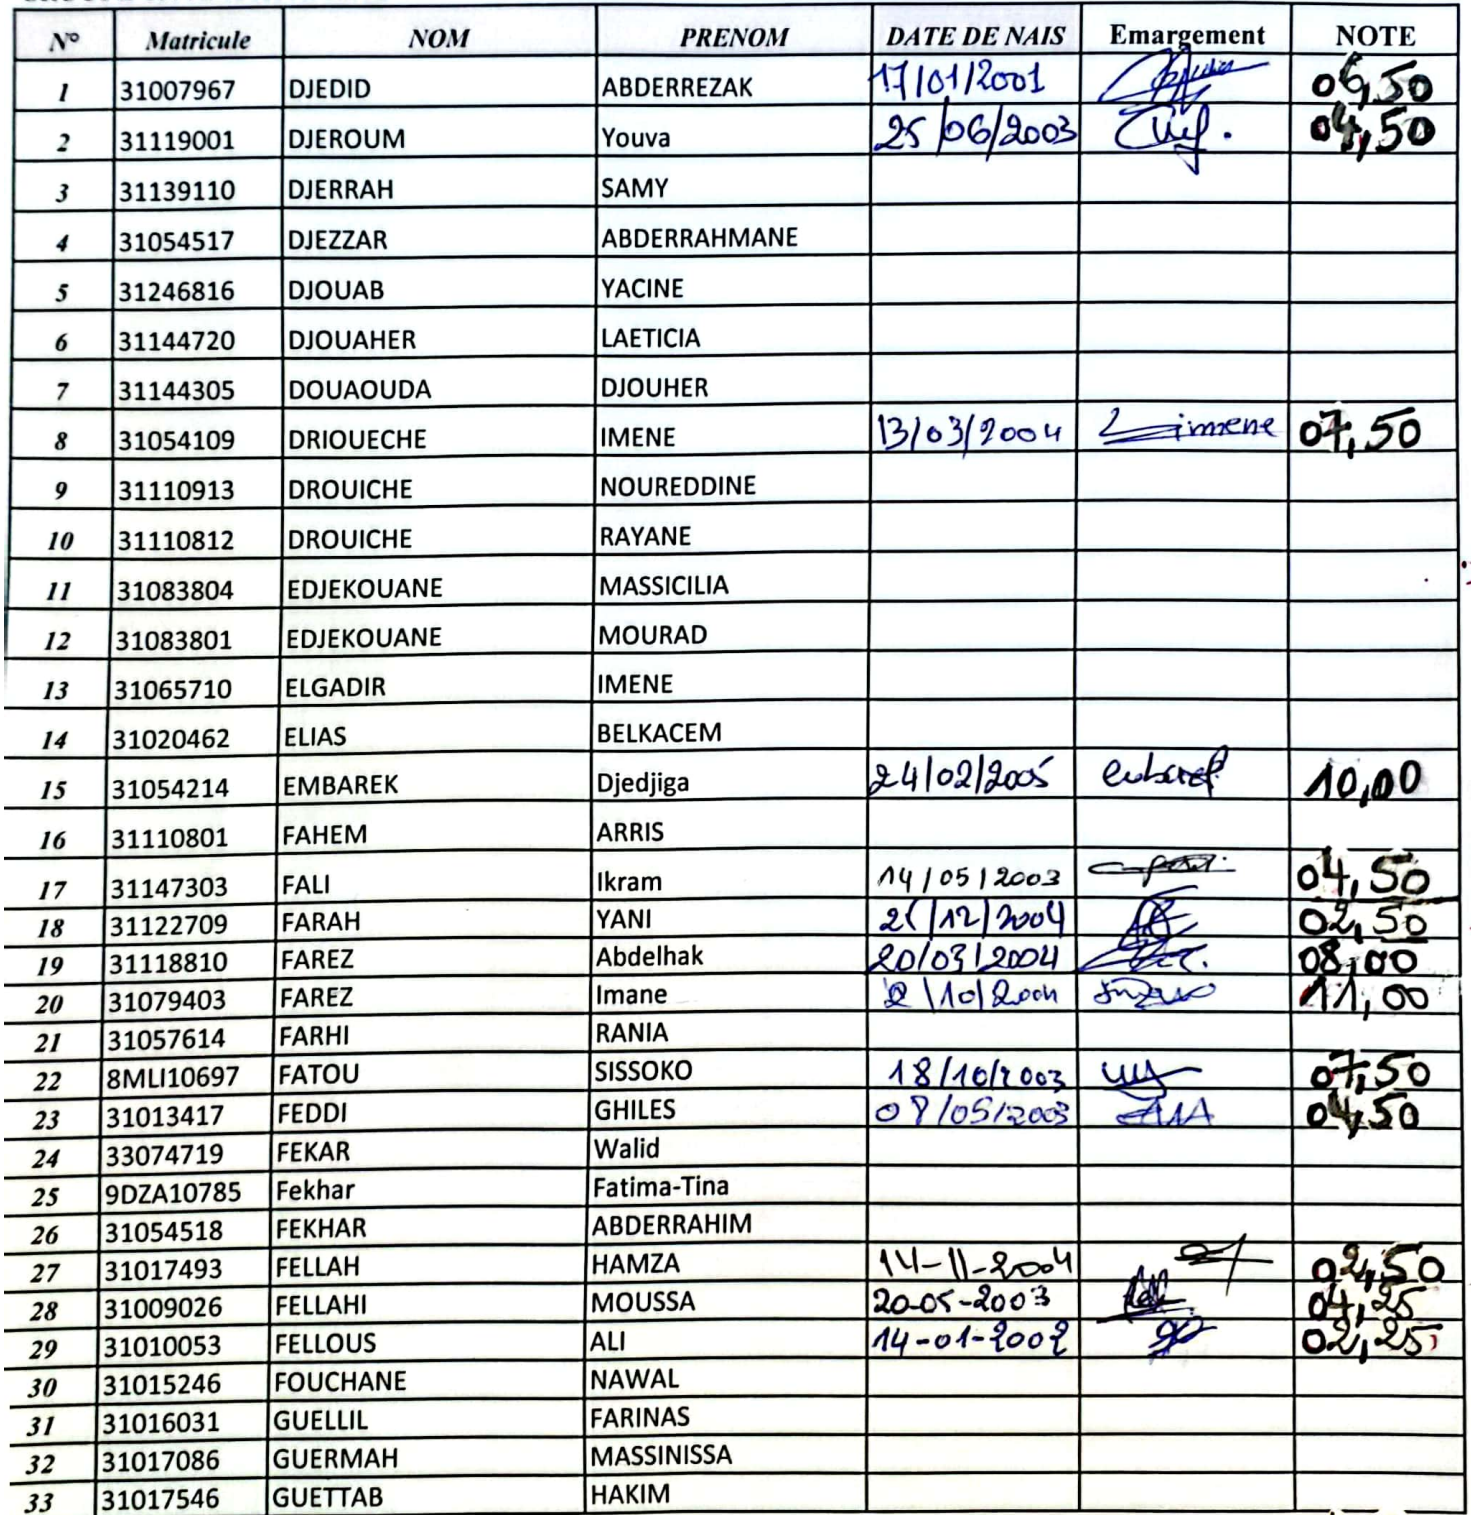 N° Matricule NOM PRENOM DATE DE NAIS Emargement NOTE
1 31007967 DJEDID ABDERREZAK 17/01/2001 06,50
2 31119001 DJEROUM Youva 25/06/2003 04,50
3 31139110 DJERRAH SAMY
4 31054517 DJEZZAR ABDERRAHMANE
5 31246816 DJOUAB YACINE
6 31144720 DJOUAHER LAETICIA
7 31144305 DOUAOUDA DJOUHER
8 31054109 DRIOUECHE IMENE 13/03/2004 imene 07,50
9 31110913 DROUICHE NOUREDDINE
10 31110812 DROUICHE RAYANE
11 31083804 EDJEKOUANE MASSICILIA
12 31083801 EDJEKOUANE MOURAD
13 31065710 ELGADIR IMENE
14 31020462 ELIAS BELKACEM
15 31054214 EMBAREK Djedjiga 24/02/2005 10,00
16 31110801 FAHEM ARRIS
17 31147303 FALI Ikram 14/05/2003 04,50
18 31122709 FARAH YANI 02,50
19 31118810 FAREZ Abdelhak 20/03/2004 08,00
20 31079403 FAREZ Imane 11,00
21 31057614 FARHI RANIA
22 8MLI10697 FATOU SISSOKO 18/10/2003 07,50
23 31013417 FEDDI GHILES 04,50
24 33074719 FEKAR Walid
25 9DZA10785 Fekhar Fatima-Tina
26 31054518 FEKHAR ABDERRAHIM
27 31017493 FELLAH HAMZA 14-11-2004 02,50
28 31009026 FELLAHI MOUSSA 20-05-2003 04,25
29 31010053 FELLOUS ALI 14-01-2002 02,25
30 31015246 FOUCHANE NAWAL
31 31016031 GUELLIL FARINAS
32 31017086 GUERMAH MASSINISSA
33 31017546 GUETTAB HAKIM